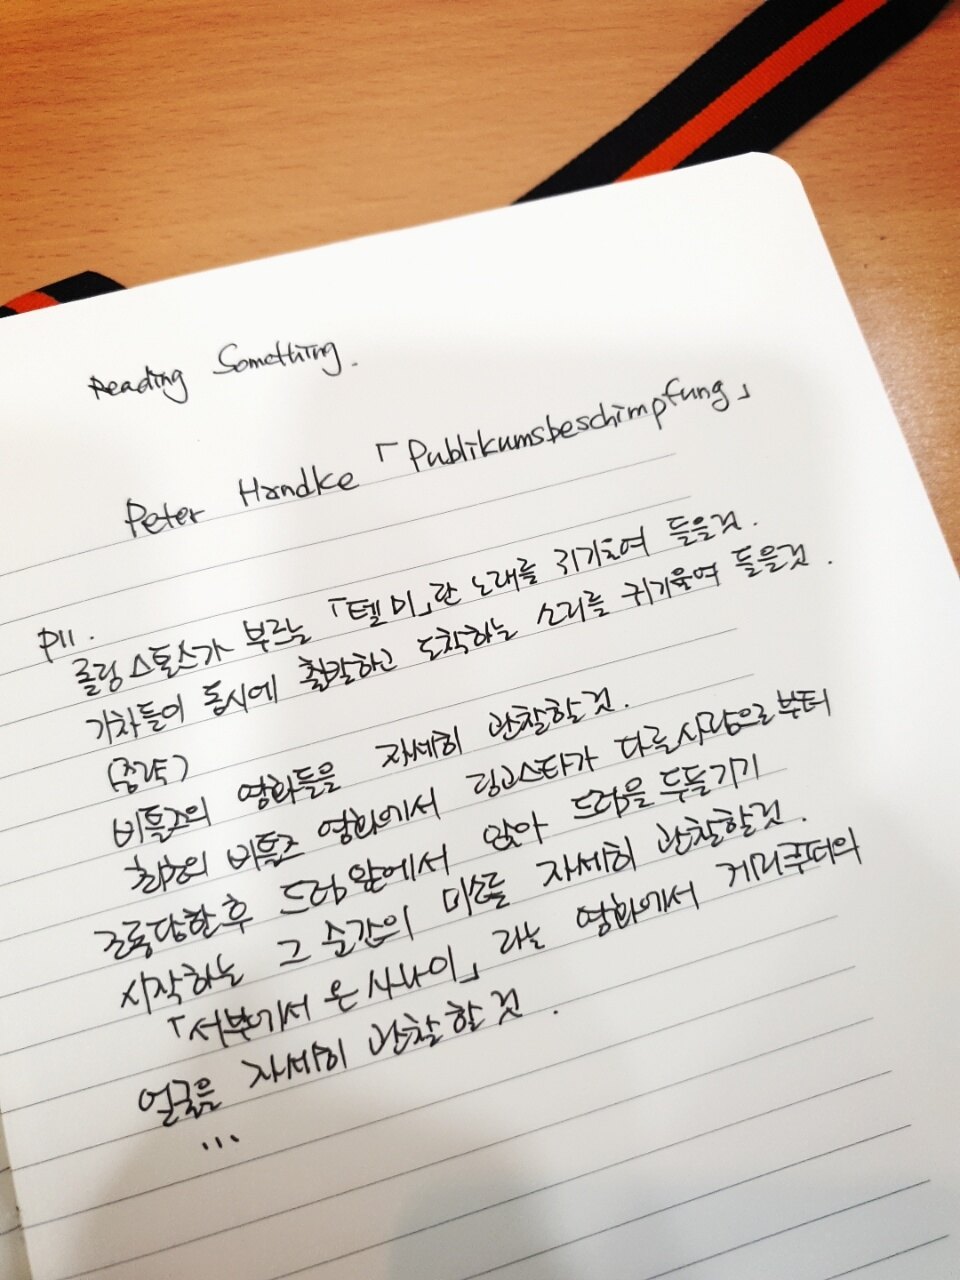 Reading Something.
Peter Handke 「Publikumsbeschimpfung」
P11.
롤링스톤스가 부르는 「텔 미」란 노래를 귀기울여 들을것.
기차들이 동시에 출발하고 도착하는 소리를 귀기울여 들을것.
(중략)
비틀즈의 영화들을 자세히 관찰할것.
최초의 비틀즈 영화에서 링고스타가 다른사람으로부터
조롱당한후 드럼앞에서 앉아 드럼을 두들기기
시작하는 그 순간의 미소를 자세히 관찰할것.
「서부에서 온 사나이」 라는 영화에서 게리쿠퍼의
얼굴을 자세히 관찰할것.
...